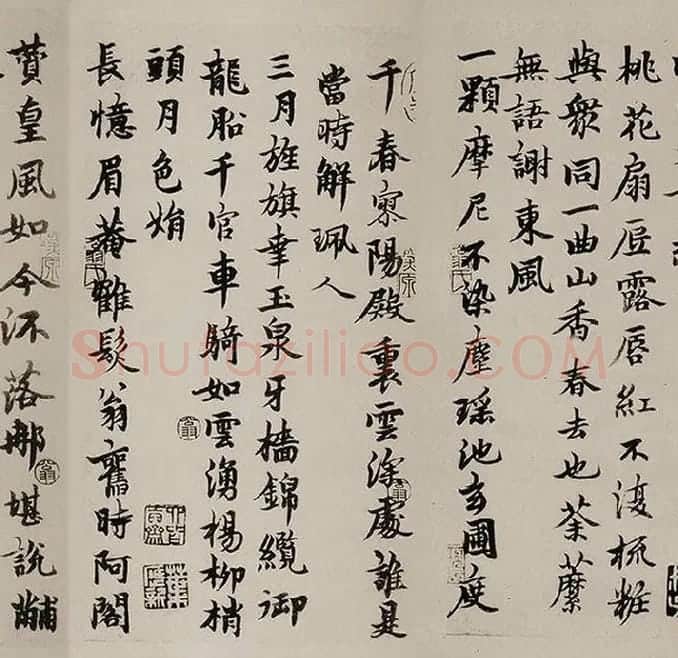 桃花扇底露唇紅不復梳粧
與眾同一曲山香春去也荼蘼
無語謝東風
一顆摩尼不染塵瑤池玄圃度
千春寥陽殿裏雲深處誰是
當時解珮人
三月旌旗幸玉泉牙檣錦纜御
龍船千官車騎如雲湧楊柳梢
頭月色娟
長憶眉菴鶴髮翁舊時阿閣
贊皇風如今流落那堪說黼
Shufaziliao.COM